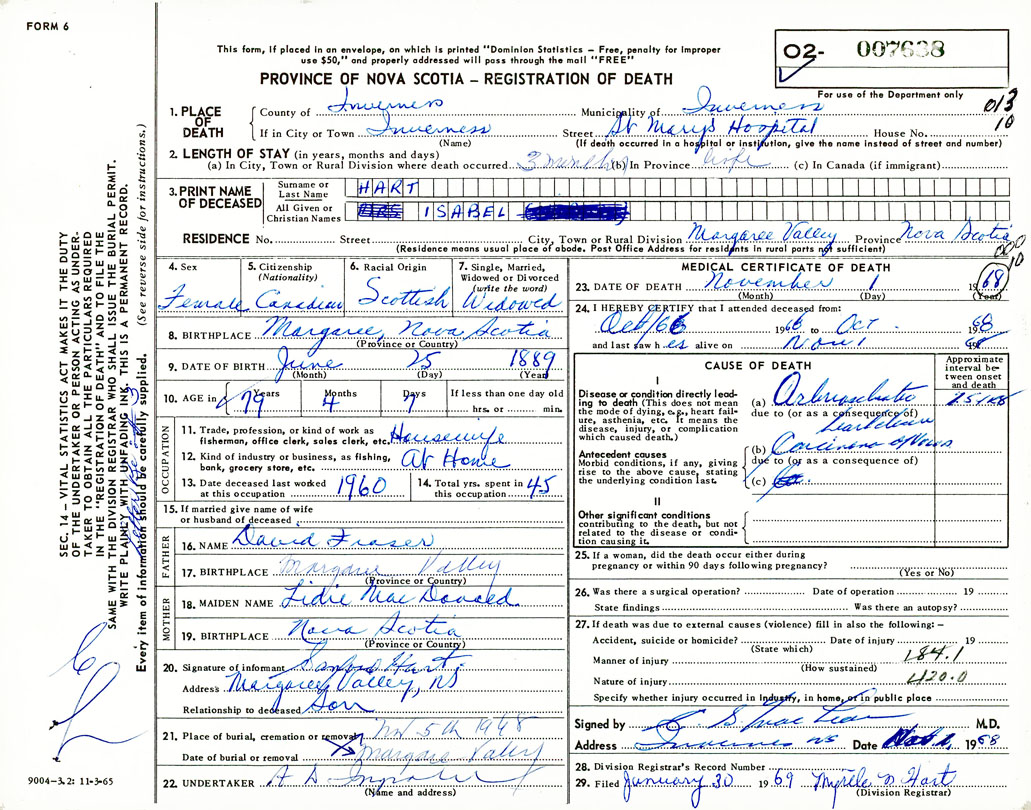 FORM 6
This form, if placed in an envelope, on which is printed "Dominion Statistics – Free, penalty for improper
use $50," and properly addressed will pass through the mail "FREE"
PROVINCE OF NOVA SCOTIA – REGISTRATION OF DEATH
O2- 007638
For use of the Department only
013
10
1. PLACE OF DEATH
County of Inverness Municipality of Inverness
If in City or Town Inverness Street St Mary's Hospital House No.
(Name) (If death occurred in a hospital or institution, give the name instead of street and number)
2. LENGTH OF STAY (in years, months and days)
(a) In City, Town or Rural Division where death occurred 3 months (b) In Province life (c) In Canada (if immigrant)
3. PRINT NAME OF DECEASED
Surname or Last Name HART
All Given or Christian Names ISABEL
RESIDENCE No. Street City, Town or Rural Division Margaree Valley Province Nova Scotia
(Residence means usual place of abode. Post Office Address for residents in rural parts not sufficient)
000
10
4. Sex Female
5. Citizenship (Nationality) Canadian
6. Racial Origin Scottish
7. Single, Married, Widowed or Divorced (write the word) Widowed
8. BIRTHPLACE Margaree, Nova Scotia
(Province or Country)
9. DATE OF BIRTH June 25 1889
(Month) (Day) (Year)
10. AGE in Years 79 Months 4 Days 7 If less than one day old
hrs. or min.
OCCUPATION
11. Trade, profession, or kind of work as
fisherman, office clerk, sales clerk, etc. Housewife
12. Kind of industry or business, as fishing,
bank, grocery store, etc. At Home
13. Date deceased last worked
at this occupation 1960
14. Total yrs. spent in
this occupation 45
15. If married give name of wife
or husband of deceased
FATHER
16. NAME David Fraser
17. BIRTHPLACE Margaree Valley
(Province or Country)
MOTHER
18. MAIDEN NAME Lidie MacDonald
19. BIRTHPLACE Nova Scotia
(Province or Country)
20. Signature of informant Sanford Hart
Address Margaree Valley, NS
Relationship to deceased Son
21. Place of burial, cremation or removal Nov 5th 1968
Date of burial or removal Margaree Valley
22. UNDERTAKER A D
(Name and address)
MEDICAL CERTIFICATE OF DEATH
23. DATE OF DEATH November 1 1968
(Month) (Day) (Year)
24. I HEREBY CERTIFY that I attended deceased from:
Oct/66 1966 to Oct. 1968
and last saw h.es alive on Nov 1 1968
CAUSE OF DEATH
Approximate interval between onset and death
I
Disease or condition directly leading to death (This does not mean the mode of dying, e.g., heart failure, asthenia, etc. It means the disease, injury, or complication which caused death.)
(a)
due to (or as a consequence of)
Antecedent causes
Morbid conditions, if any, giving rise to the above cause, stating the underlying condition last.
(b) Carcinoma of
due to (or as a consequence of)
(c)
II
Other significant conditions
contributing to the death, but not
related to the disease or condition causing it.
25. If a woman, did the death occur either during
pregnancy or within 90 days following pregnancy?
(Yes or No)
26. Was there a surgical operation? Date of operation 19
State findings Was there an autopsy?
27. If death was due to external causes (violence) fill in also the following: –
Accident, suicide or homicide? Date of injury 19
(State which)
Manner of injury 184.1
(How sustained)
Nature of injury 420.0
Specify whether injury occurred in Industry, in home, or in public place
Signed by C S MacLean M.D.
Address Inverness NS Date Nov 1, 1968
28. Division Registrar's Record Number
29. Filed January 30 1969 Myrtle D Hart
(Division Registrar)
SEC. 14 – VITAL STATISTICS ACT MAKES IT THE DUTY
OF THE UNDERTAKER OR PERSON ACTING AS UNDER-
TAKER TO OBTAIN ALL THE PARTICULARS REQUIRED
IN THE "REGISTRATION OF DEATH" AND TO FILE THE
SAME WITH THE DIVISION REGISTRAR WHO SHALL ISSUE THE BURIAL PERMIT.
WRITE PLAINLY WITH UNFADING INK. THIS IS A PERMANENT RECORD.
Every item of information should be carefully supplied. (See reverse side for instructions.)
9004-3.2: 11-3-65